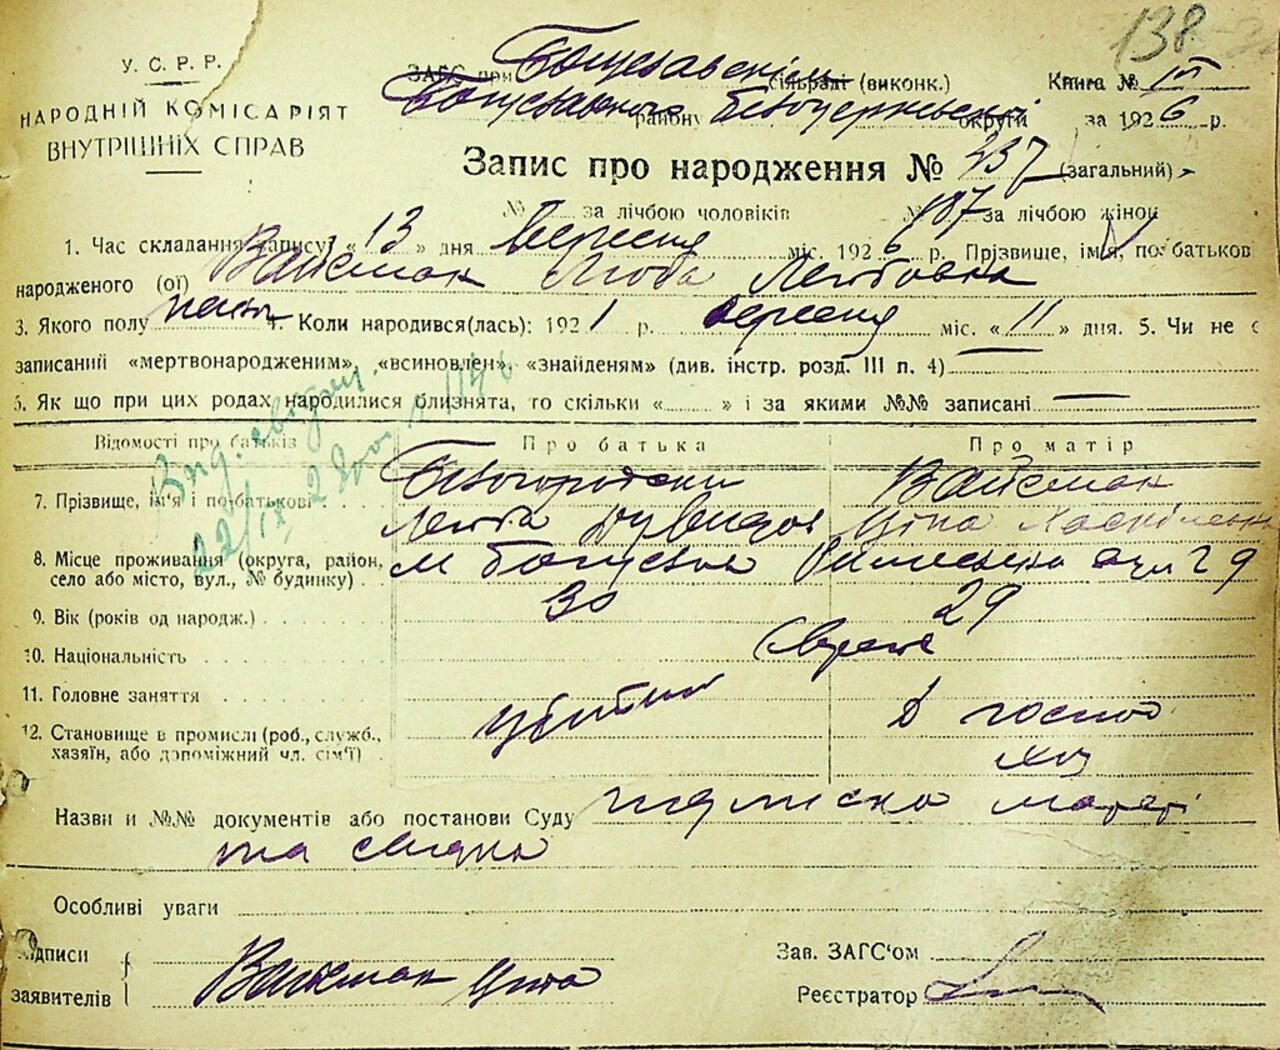 138
У. С. Р. Р.
НАРОДНІЙ КОМІСАРІЯТ
ВНУТРІШНІХ СПРАВ
ЗАГС при Богуславскім сільраді (виконк.) Книга № III
Богуславського району Білоцерківської округи за 1926 р.
Запис про народження № 237 (загальний)
№ за лічбою чоловіків № 107 за лічбою жінок
1. Час складання запису: « 13 » дня Вересня міс. 1926 р. Прізвище, ім'я, по батьков
народженого (ої) Вайсман Люба Лейбовна
3. Якого полу жіноч 4. Коли народився(лась): 1921 р. вересня міс. « 11 » дня. 5. Чи не є
записаний «мертвонародженим», «всиновлен», «знайденям» (див. інстр. розд. III п. 4)
6. Як що при цих родах народилися близнята, то скільки « » і за якими №№ записані
Відомості про батьків Про батька Про матір
7. Прізвище, ім'я і по-батькові Білогородски Вайсман
Лейба Дувидов Ціпа
8. Місце проживання (округа, район, м Богуслав вул 29
село або місто, вул., № будинку)
9. Вік (років од народж.) 30 29
10. Національність Євреи
11. Головне заняття
12. Становище в промислі (роб., служб., убитий Д госпо
хазяїн, або допоміжний чл. сім'ї) хоз
Назви и №№ документів або постанови Суду підписка матері
та свідки
Особливі уваги
підписи
заявителів Вайсман Ципа
Зав. ЗАГС'ом
Реєстратор